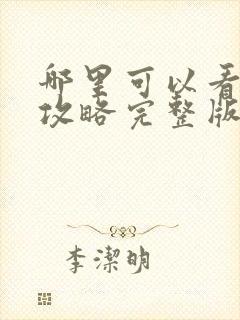 哪里可以看
攻略完整版
李潔明